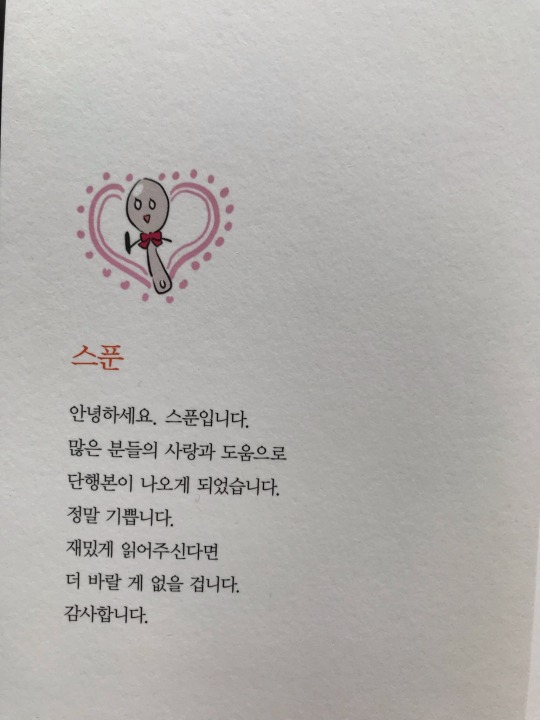 스푼
안녕하세요. 스푼입니다.
많은 분들의 사랑과 도움으로
단행본이 나오게 되었습니다.
정말 기쁩니다.
재밌게 읽어주신다면
더 바랄 게 없을 겁니다.
감사합니다.